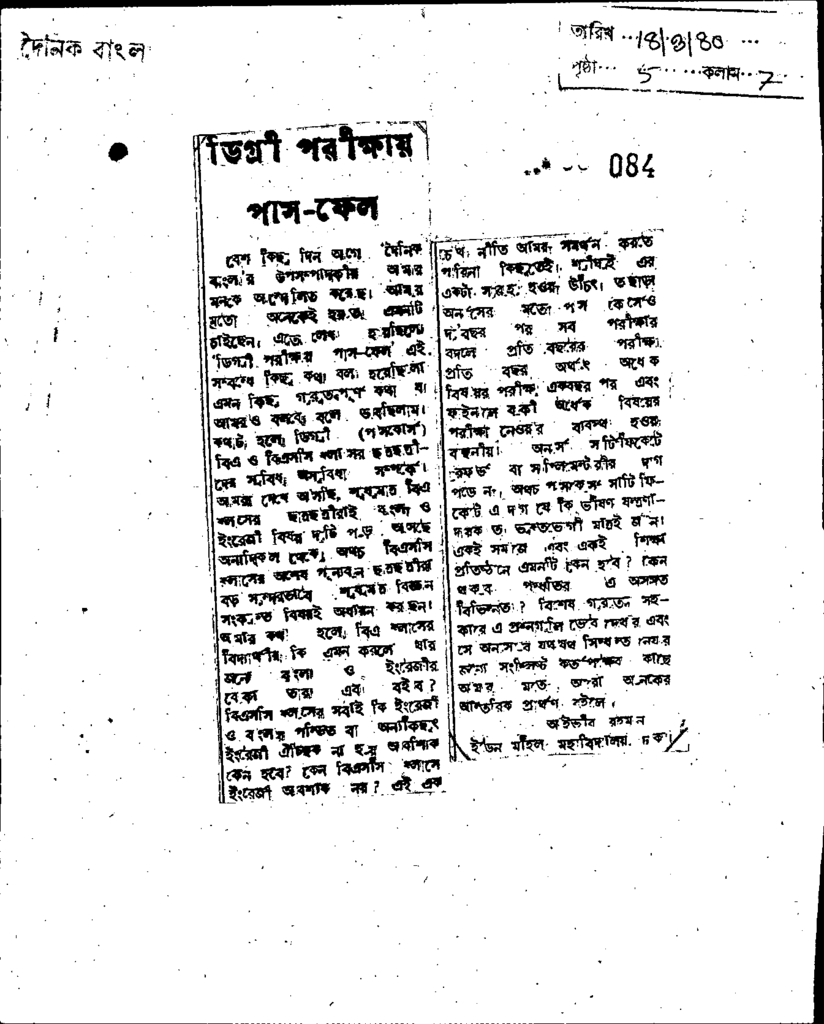 দৈনিক বাংলা
তারিখ ... 18/3/80 ...
পৃষ্ঠা ... 5 ... কলাম ... 7
084
ডিগ্রী পরীক্ষায়
পাস-ফেল
বেশ কিছু দিন আগে 'দৈনিক
বাংলার উপসম্পাদকীয় আমার
মনকে আন্দোলিত করেছে। আমার
মতো অনেকেই হয়ত এমনটি
চাইছেন, এতে লেখা হয়েছিলো
'ডিগ্রী পরীক্ষায় পাস-ফেল' এই
সম্বন্ধে কিছু কথা বলা হয়েছিলো
এমন কিছু গুরুত্বপূর্ণ কথা যা
আমরাও বলবো বলে ভাবছিলাম।
কথাটা হলো ডিগ্রী (পাসকোর্স)
বিএ ও বিএসসি ক্লাসের ছাত্রছাত্রী-
দের সুবিধা অসুবিধা সম্পর্কে।
আমরা দেখে আসছি, শুধুমাত্র বিএ
ক্লাসের ছাত্রছাত্রীরাই বাংলা ও
ইংরেজী বিষয় দুটি পড়ে আসছে
অনাদিকাল থেকে, অথচ বিএসসি
ক্লাসের অশেষ পুন্যবান ছাত্রছাত্রীরা
বড় সুন্দরভাবে শুধুমাত্র বিজ্ঞান
সংক্রান্ত বিষয়ই অধ্যয়ন করছেন।
আমার কথা হলো, বিএ ক্লাসের
বিদ্যার্থীরা কি এমন করলো যার
জন্যে বাংলা ও ইংরেজীর
বোঝা তারা এবা বইবে?
বিএসসি ক্লাসের সবাই কি ইংরেজী
ও বাংলায় পণ্ডিত বা অন্যকিছু?
ইংরেজী ঐচ্ছিক না হয়ে আবশ্যিক
কেন হবে? কেন বিএসসি ক্লাসে
ইংরেজী আবশ্যিক নয়? এই এক
চোখা নীতি আমরা সমর্থন করতে
পারিনা কিছুতেই। শীঘ্রই এর
একটা সুরাহা হওয়া উচিৎ। তাছাড়া
অনার্সের মতো পাস কোর্সেও
দু'বছর পর সব পরীক্ষার
বদলে প্রতি বছরের পরীক্ষা
প্রতি বছর অর্থাৎ অর্ধেক
বিষয়ের পরীক্ষা একবছর পর এবং
ফাইনালে বাকী অর্ধেক বিষয়ের
পরীক্ষা নেওয়ার ব্যবস্থা হওয়া
বাঞ্ছনীয়। অনার্স সার্টিফিকেটে
রেফার্ড বা সাপ্লিমেন্টারীর দাগ
পড়ে না, অথচ পাসকোর্স সার্টিফি-
কেটে এ দাগ যে কি ভীষণ যন্ত্রণা-
দায়ক তা ভুক্তভোগী মাত্রই জানে।
একই সমাজে এবং একই শিক্ষা
প্রতিষ্ঠানে এমনটি কেন হবে? কেন
থাকবে পদ্ধতির এ অসঙ্গত
বিভিন্নতা? বিশেষ গুরুত্ব সহ-
কারে এ প্রশ্নগুলি ভেবে দেখার এবং
সে অনুসারে যথাযথ সিদ্ধান্ত নেয়ার
জন্যে সংশ্লিষ্ট কর্তৃপক্ষের কাছে
আমার মতো আরো অনেকের
আন্তরিক প্রার্থনা রইলো।
আইভীর রহমান
ইডেন মহিলা মহাবিদ্যালয়, ঢাকা।